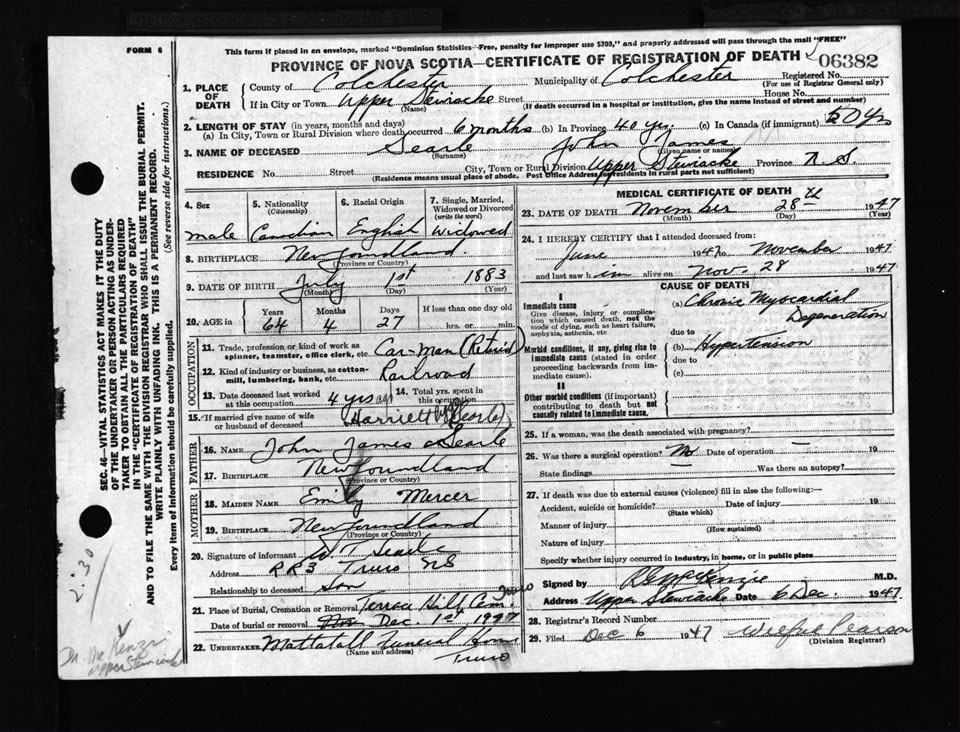 FORM 6
This form if placed in an envelope, marked "Dominion Statistics—Free, penalty for improper use $300," and properly addressed will pass through the mail "FREE"
PROVINCE OF NOVA SCOTIA—CERTIFICATE OF REGISTRATION OF DEATH
06382
1. PLACE OF DEATH
County of Colchester Municipality of Colchester Registered No.
(For use of Registrar General only)
If in City or Town Upper Stewiacke Street House No.
(Name) (If death occurred in a hospital or institution, give the name instead of street and number)
2. LENGTH OF STAY (in years, months and days)
(a) In City, Town or Rural Division where death occurred 6 months (b) In Province 40 yrs. (c) In Canada (if immigrant) 50 yrs
3. NAME OF DECEASED Searle John James
(Surname) (Given name or names)
RESIDENCE No. Street City, Town or Rural Division Upper Stewiacke Province N S.
(Residence means usual place of abode. Post Office Address for residents in rural parts not sufficient)
4. Sex
male
5. Nationality
(Citizenship)
Canadian
6. Racial Origin
English
7. Single, Married, Widowed or Divorced
(write the word)
Widowed
8. BIRTHPLACE Newfoundland
(Province or Country)
9. DATE OF BIRTH July 1st 1883
(Month) (Day) (Year)
10. AGE in Years Months Days If less than one day old
64 4 27 hrs. or min.
OCCUPATION
11. Trade, profession or kind of work as spinner, teamster, office clerk, etc. Car-man (Retired)
12. Kind of industry or business, as cotton-mill, lumbering, bank, etc. Railroad
13. Date deceased last worked at this occupation 4 yrs ago
14. Total yrs. spent in this occupation
15. If married give name of wife or husband of deceased Harriett Searle
FATHER
16. NAME John James Searle
17. BIRTHPLACE Newfoundland
(Province or Country)
MOTHER
18. MAIDEN NAME Emily Mercer
19. BIRTHPLACE Newfoundland
(Province or Country)
20. Signature of informant W. T. Searle
Address RR3 Truro NS
Relationship to deceased Son
21. Place of Burial, Cremation or Removal Terrace Hill Cem. Truro
Date of burial or removal Dec. 1st 1947
22. UNDERTAKER Mattatall Funeral Home
(Name and address) Truro
MEDICAL CERTIFICATE OF DEATH
23. DATE OF DEATH November 28th 1947
(Month) (Day) (Year)
24. I HEREBY CERTIFY that I attended deceased from:
June 1947 to November 1947
and last saw him alive on Nov. 28 1947
CAUSE OF DEATH
I
Immediate cause
Give disease, injury or complication which caused death, not the mode of dying, such as heart failure, asphyxia, asthenia, etc
(a) Chronic Myocardial Degeneration
due to
Morbid conditions, if any, giving rise to immediate cause (stated in order proceeding backwards from immediate cause).
(b) Hypertension
due to
(c)
II
Other morbid conditions (if important) contributing to death but not causally related to immediate cause.
25. If a woman, was the death associated with pregnancy?
26. Was there a surgical operation? No Date of operation 19
State findings Was there an autopsy?
27. If death was due to external causes (violence) fill in also the following:—
Accident, suicide or homicide? Date of injury 19
(State which)
Manner of injury
(How sustained)
Nature of injury
Specify whether injury occurred in industry, in home, or in public place
Signed by McKenzie M.D.
Address Upper Stewiacke Date 6 Dec. 1947.
28. Registrar's Record Number
29. Filed Dec 6 1947 Pearson
(Division Registrar)
SEC. 46—VITAL STATISTICS ACT MAKES IT THE DUTY
OF THE UNDERTAKER OR PERSON ACTING AS UNDER-
TAKER TO OBTAIN ALL THE PARTICULARS REQUIRED
IN THE "CERTIFICATE OF REGISTRATION OF DEATH"
AND TO FILE THE SAME WITH THE DIVISION REGISTRAR WHO SHALL ISSUE THE BURIAL PERMIT.
WRITE PLAINLY WITH UNFADING INK. THIS IS A PERMANENT RECORD.
Every item of information should be carefully supplied. (See reverse side for instructions.)
2:30
Dr. McKenzie
Upper Stewiacke